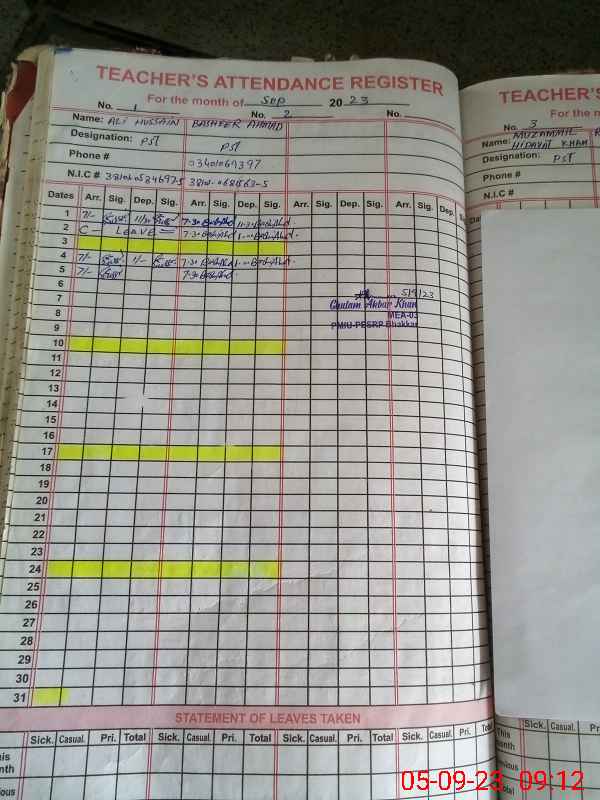 TEACHER'S ATTENDANCE REGISTER
For the month of Sep 2023
No. 1 No. 2 No.
Name: ALI HUSSAIN BASHEER AHMAD
Designation: PST PST
Phone # 03401069397
N.I.C #
Dates Arr. Sig. Dep. Sig. Arr. Sig. Dep. Sig. Arr. Sig. Dep. Sig. Arr. Sig. Dep. Sig.
1 7/- 11/30 7-30 11-30
2 C - LEAVE = 7-30
3
4 7/- 1/- 7-30
5 7/- 7-30
6
7 5/9/23
8 Ghulam Akbar Khan
MEA-03
9 PMIU-PESRP Bhakkar
10
11
12
13
14
15
16
17
18
19
20
21
22
23
24
25
26
27
28
29
30
31
STATEMENT OF LEAVES TAKEN
Sick. Casual. Pri. Total Sick. Casual. Pri. Total Sick. Casual. Pri. Total Sick. Casual. Pri. Total
This
month
TEACHER'S
For the m
No. 3
Name: MUZAMMIL
HIDAYAT KHAN
Designation: PST
Phone #
N.I.C #
Dates
Sick. Casual. Pri. Total
This
month
05-09-23 09:12